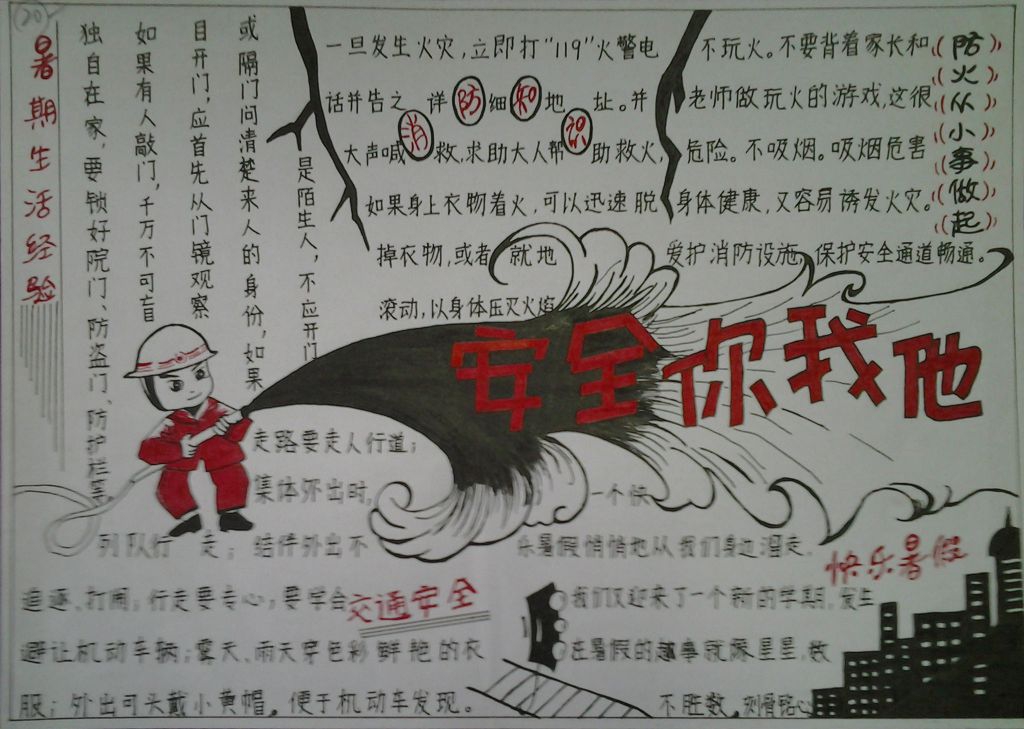 20
暑期生活经验
独自在家,要锁好院门、防盗门、防护栏等
如果有人敲门,千万不可盲
目开门,应首先从门镜观察
或隔门问清楚来人的身份,如果
是陌生人,不应开门
一旦发生火灾,立即打“119”火警电
话并告之 详细地 址。并
大声喊 救,求助大人帮 助救火,
如果身上衣物着火,可以迅速脱
掉衣物,或者 就地
滚动,以身体压灭火焰
消防知识
不玩火。不要背着家长和
老师做玩火的游戏,这很
危险。不吸烟。吸烟危害
身体健康,又容易诱发火灾。
爱护消防设施,保护安全通道畅通。
防火从小事做起
安全你我他
走路要走人行道;
集体外出时,
列队行 走;结伴外出不
追逐、打闹;行走要专心,要学会
避让机动车辆;雾天、雨天穿色彩鲜艳的衣
服;外出可头戴小黄帽。便于机动车发现。
交通安全
快乐暑假
一个快
乐暑假悄悄地从我们身边溜走,
我们又迎来了一个新的学期,发生
在暑假的趣事就像星星,数
不胜数。刻骨铭心